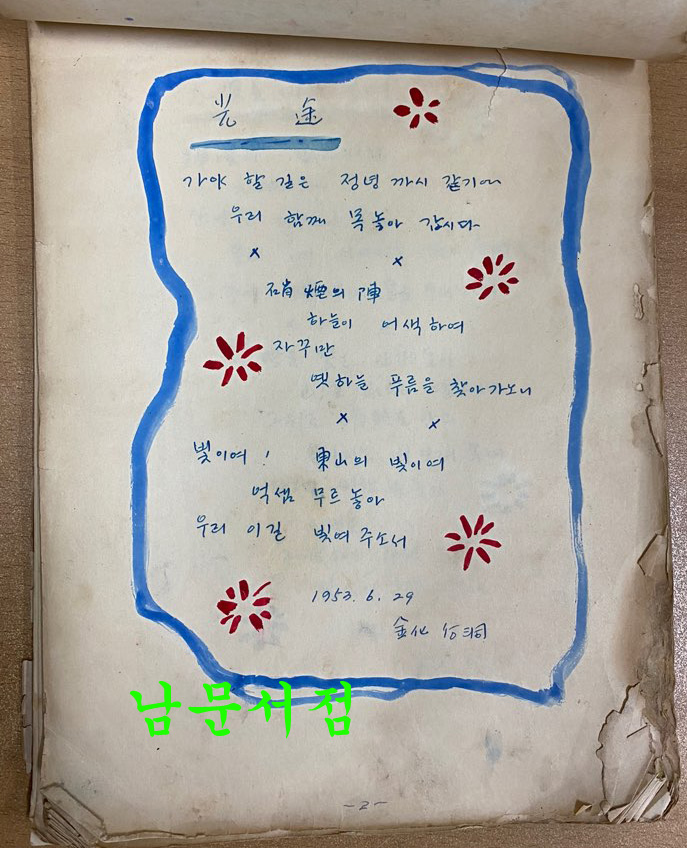 光 途
가야 할 길은 정녕 까시 같기에
우리 함께 목놓아 갑시다
x x
硝煙의 陣
하늘이 어색하여
자꾸만
옛하늘 푸름을 찾아가노니
x x
빛이여! 東山의 빛이여
억셈 무르놓아
우리 이길 빛여주소서
1953. 6. 29
金化 洞
남문서점
-2-